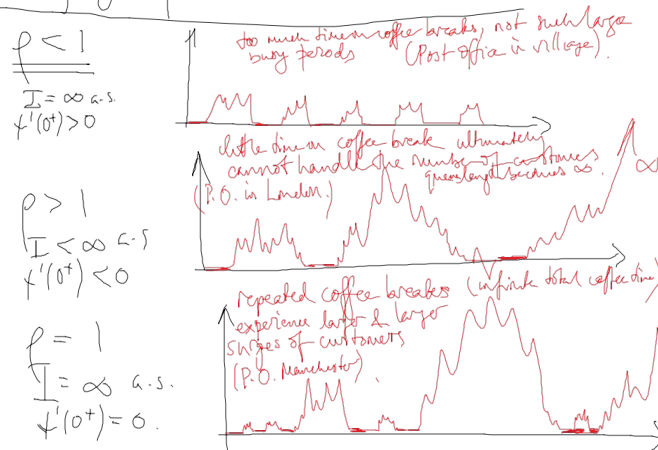 ρ < 1
I = ∞ a.s.
ψ'(0+) > 0
too much time on coffee breaks, not such large
busy periods (Post office in village).
ρ > 1
I < ∞ a.s
ψ'(0+) < 0
little time on coffee break ultimately
cannot handle the number of customers
queuelength becomes ∞.
(P.O. in London.)
∞
ρ = 1
I = ∞ a.s.
ψ'(0+) = 0.
repeated coffee breaks (infinite total coffee time)
experience larger & larger
surges of customers
(P.O. Manchester)